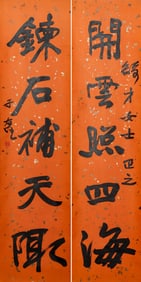 才女士正之
開雲照四海
鍊石補天
于右任